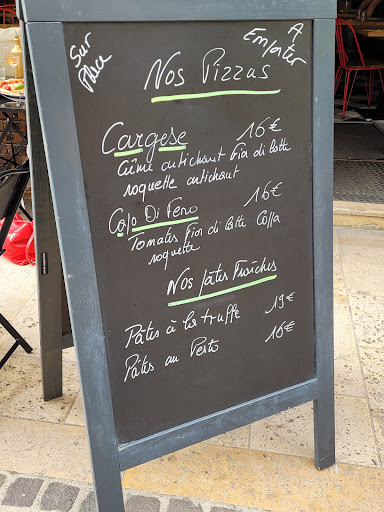 Sur Place
A Emporter
Nos Pizzas
Cargese 16€
Crème artichaut Fior di latte
roquette artichaut
Capo Di Feno 16€
Tomates Fior di latte Coppa
roquette
Nos pâtes Fraîches
Pâtes à la truffe 19€
Pâtes au Pesto 16€